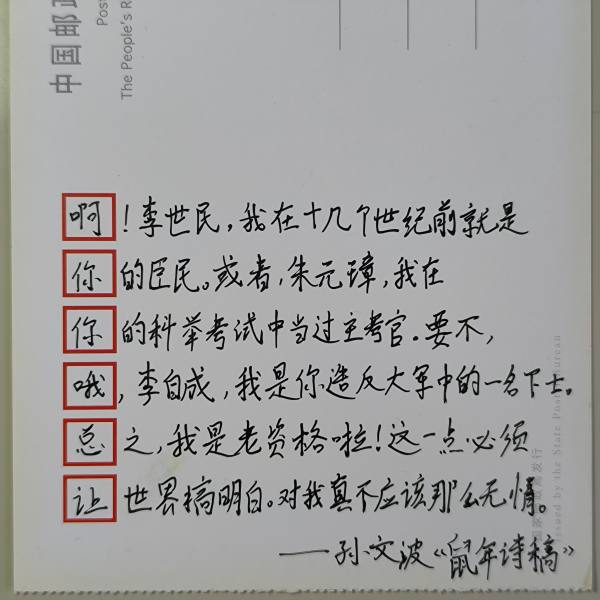 中国邮政
Post
The People's R
啊！李世民，我在十几个世纪前就是
你的臣民。或者，朱元璋，我在
你的科举考试中当过主考官．要不，
哦，李自成，我是你造反大军中的一名下士。
总之，我是老资格啦！这一点必须
让世界搞明白。对我真不应该那么无情。
——孙文波《鼠年诗稿》
发行
Issued by the State Post Bureau